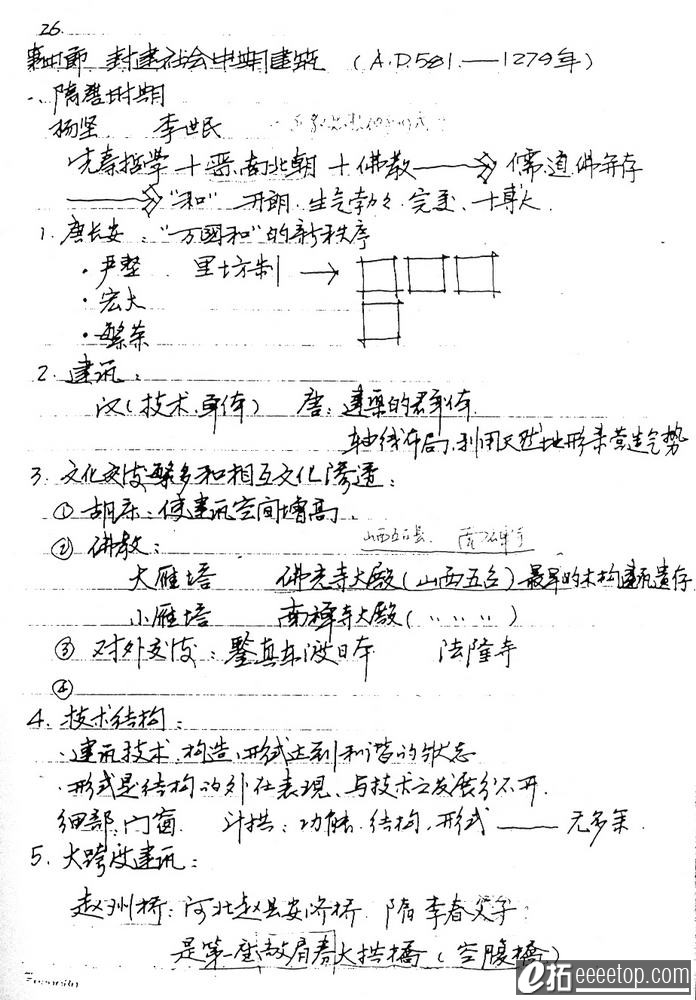 26.
第四节 封建社会中期建筑 (A.D.581.——1279年)
一、隋唐时期
杨坚 李世民
先秦哲学 + 晋、南北朝 + 佛教 → 儒.道.佛并存
→ "和" 开朗.生气勃々.完美、博大
1. 唐长安："万国和"的新秩序
·严整 里坊制 →
·宏大
·繁荣
2. 建筑：
汉(技术.单体) 唐：建筑的群体
轴线布局.利用天然地形来营造气势
3. 文化交流繁多和相互文化渗透：
① 胡床：使建筑空间增高.
② 佛教： 山西五台县
大雁塔 佛光寺大殿(山西五台) 最早的木构建筑遗存
小雁塔 南禅寺大殿( 〃 〃 )
③ 对外交流：鉴真东渡日本 法隆寺
④
4. 技术结构：
·建筑技术、构造、形式达到和谐的状态
·形式是结构的外在表现、与技术之发展分不开.
细部、门窗. 斗拱：功能.结构.形式 —— 无多余.
5. 大跨度建筑：
赵州桥：河北赵县安济桥. 隋 李春父子：
是第一座敞肩券大拱桥 (空腹桥)
e拓 eeeetop.com